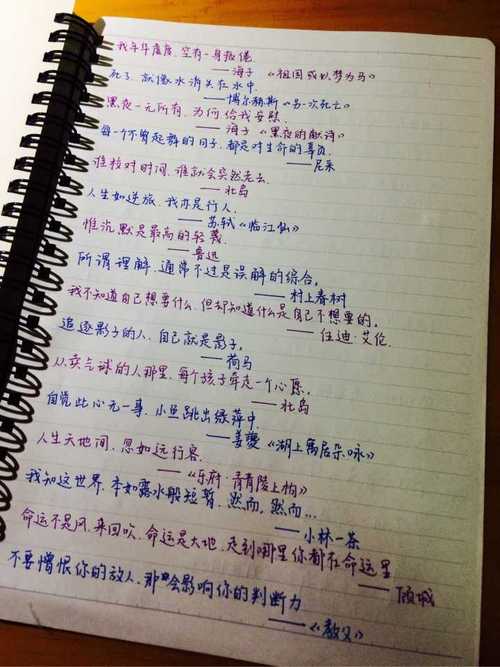 我年年虚度，空有一身疲倦
——海子《祖国或以梦为马》
死了，就像水消失在水中.
——博尔赫斯《另一次死亡》
黑夜一无所有，为何给我安慰
——海子《黑夜的献诗》
每一个不曾起舞的日子，都是对生命的辜负.
——尼采
谁校对时间，谁就会突然老去.
——北岛
人生如逆旅，我亦是行人.
——苏轼《临江仙》
惟沉默是最高的轻蔑.
——鲁迅
所谓理解，通常不过是误解的综合。
——村上春树
我不知道自己想要什么，但却知道什么是自己不想要的。
——伍迪·艾伦
追逐影子的人，自己就是影子。
——荷马
从卖气球的人那里，每个孩子牵走一个心愿.
——北岛
自觉此心无一事，小鱼跳出绿萍中.
——姜夔《湖上寓居杂咏》
人生天地间，忽如远行客.
——《乐府·青青陵上柏》
我知这世界，本如露水般短暂，然而，然而...
——小林一茶
命运不是风，来回吹，命运是大地，走到哪里你都在命运里
——倾城
不要憎恨你的敌人，那会影响你的判断力
——《教父》